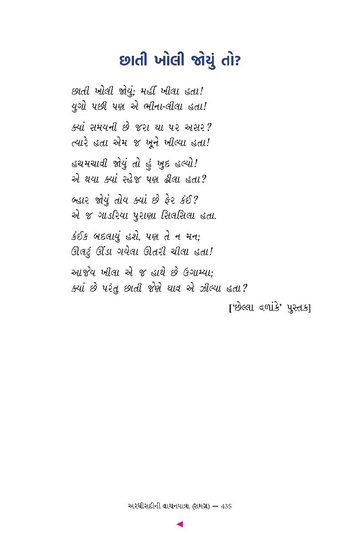 છાતી ખોલી જોયું તો?
છાતી ખોલી જોયું; મહીં ખીલા હતા!
યુગો પછી પણ એ ભીના-લીલા હતા!
ક્યાં સમયની છે જરા થા પર અસર?
ત્યારે હતા એમ જ ખૂને ખીલ્યા હતા!
હચમચાવી જોયું તો હું ખુદ હલ્યો!
એ થયા ક્યાં સ્હેજ પણ ઢીલા હતા?
બ્હાર જોયું તોય ક્યાં છે ફેર કંઈ?
એ જ ગાડરિયા પુરાણા સિલસિલા હતા.
કંઈક બદલાયું હશે, પણ તે ન મન;
ઊલટું ઊંડા ગયેલા ઊતરી ચીલા હતા!
આજેય ખીલા એ જ હાથે છે ઉગામ્યા;
ક્યાં છે પરંતુ છાતી જેણે ઘાવ એ ઝીલ્યા હતા?
[‘છેલ્લા વળાંકે’ પુસ્તક]
અરધીસદીની વાચનયાત્રા (સમગ્ર) — 435